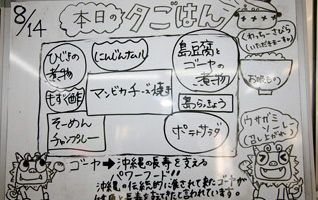 8/14
本日の夕ごはん
ひじきの
煮物
にんじんナムル
島豆腐
と
ゴーヤの
煮物
くわっちーさびら
(いただきまーす)
お吸もの
もずく酢
マンビカチーズ焼き
島らっきょう
そーめん
チャンプルー
ポテトサラダ
ウサガミ
ソーレー
召し上がれ
ゴーヤ → 沖縄の長寿を支える
パワーフード!!
沖縄の伝統的に食されて来たゴーヤが
健康と長寿を育てたと言われています。